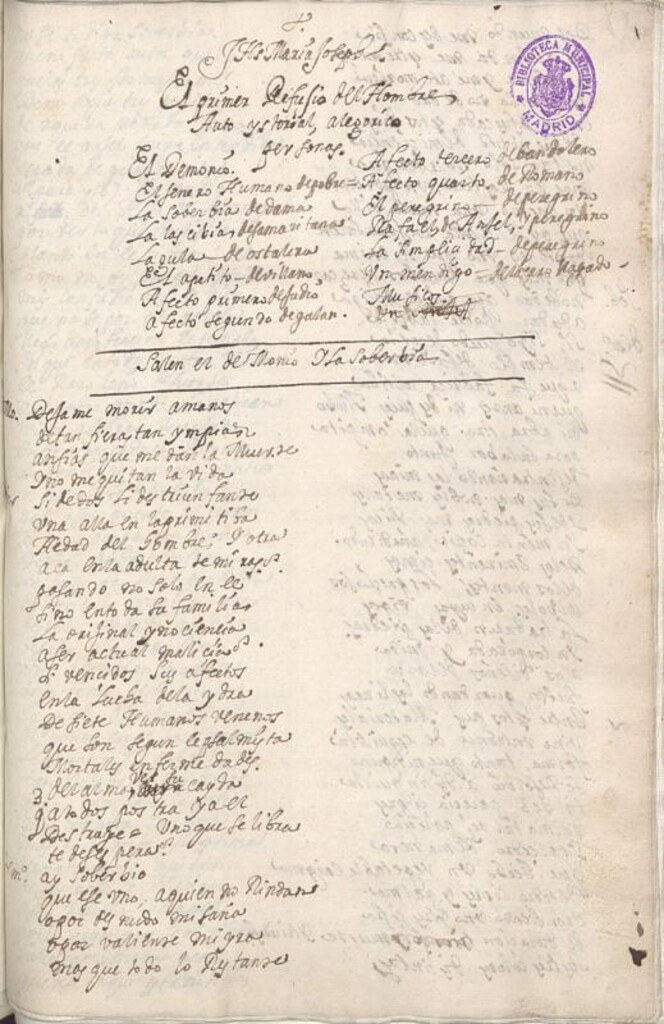 JHs María Joseph
BIBLIOTECA MUNICIPAL
MADRID
El primer Refujio del Hombre
Auto ystorial, alegorico
Personas.
El Demonio.
El Jenero Humano de pobre
La Soberbia de dama
La lascibia de samaritana
La gula - de ostalera
El apetito - de villano
Afecto primero de judio
afecto segundo de galan.
Afecto tercero de bandolero
Afecto quarto. de Romano
El peregrino - de peregrino
Rafael, de Anjel, y peregrino
La Simplicidad - de peregrino
Un mendigo - de
Musicos.
Salen el deMonio Y la Soberbia
Dejame morir a manos
de tan fieras tan ympias
ansias que me dan la Muerte
Y no me quitan la vida
Si de dos lides triunfante
una alla en la primitiba
Hedad del Hombre, Y otra
aca en la adulta de mi
pasando no solo en el
Sino en toda su familia
La orijinal ynociencia
a ser actual malicia
Si vencidos sus afectos
en la lucha de la ydra
De siete Humanos venenos
que son segun el psalmista
Mortales enfermedades.
del alma cayda
ya todos postra ya el
Destraye Uno que se libra
te desespera
ay Soberbio
que ese Uno, a quien no Rindan
o por desnudo mi saña
o por valiente mi yra
mas que todo lo Restante